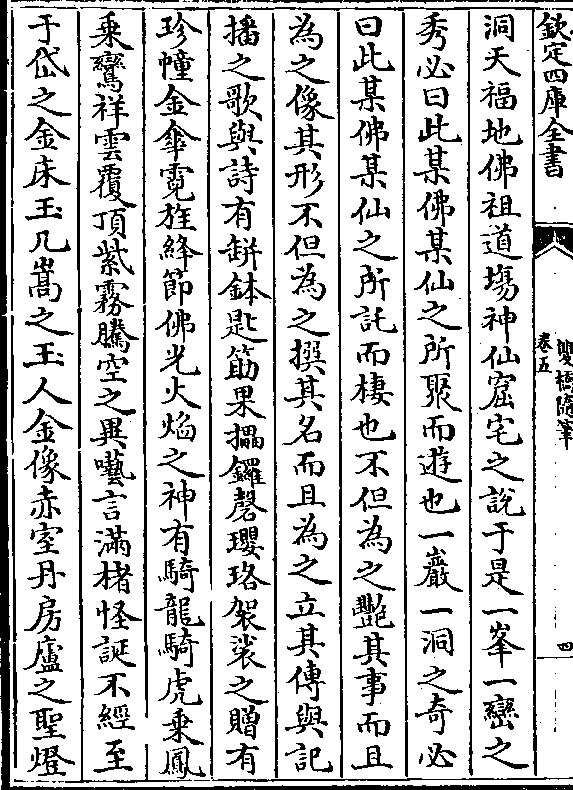 欽定四庫全書
雙橋隨筆
卷五
四
洞天福地佛祖道塲神仙窟宅之說于是一峯一巒之
秀必曰此某佛某仙之所聚而遊也一巖一洞之奇必
曰此某佛某仙之所託而棲也不但為之豔其事而且
為之像其形不但為之撰其名而且為之立其傳與記
播之歌與詩有缾鉢匙筯果攂鑼磬瓔珞袈裟之贈有
珍幢金傘霓旌絳節佛光火焰之神有騎龍騎虎乘鳳
乘鸞祥雲覆頂紫霧騰空之異囈言滿楮怪誕不經至
于岱之金床玉几嵩之玉人金像赤室丹房廬之聖燈